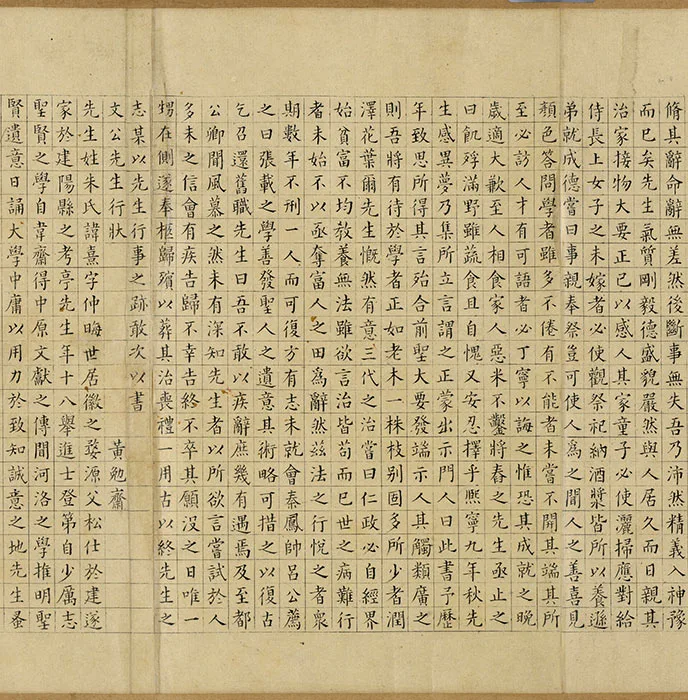 脩其辭命辭無差然後斷事無失吾乃沛然精義入神豫
而已矣先生氣質剛毅德盛貌嚴然與人居久而日親其
治家接物大要正己以感人其家童子必使灑掃應對給
侍長上女子之未嫁者必使觀祭祀納酒漿皆所以養遜
弟就成德嘗曰事親奉祭豈可使人為之聞人之善喜見
顏色答問學者雖多不倦有不能者未嘗不開其端其所
至必訪人才有可語者必丁寧以誨之惟恐其成就之晚
歲適大歉至人相食家人惡米不鑿將舂之先生亟止之
曰飢殍滿野雖蔬食且自愧又安忍擇乎熙寧九年秋先
生感異夢乃集所立言謂之正蒙出示門人曰此書予歷
年致思所得其言殆合前聖大要發端示人其觸類廣之
則吾將有待於學者正如老木一株枝別固多所少者潤
澤花葉爾先生慨然有意三代之治嘗曰仁政必自經界
始貧富不均敎養無法雖欲言治皆苟而已世之病難行
者未始不以亟奪富人之田為辭然茲法之行悅之者衆
期數年不刑一人而可復方有志未就會秦鳳帥呂公薦
之曰張載之學善發聖人之遺意其術略可措之以復古
乞召還舊職先生曰吾不敢以疾辭庶幾有遇焉及至都
公卿聞風慕之然未有深知先生者以所欲言嘗試於人
多未之信會有疾告歸不幸告終不卒其願沒之日唯一
甥在側遂奉柩歸殯以葬其治喪禮一用古以終先生之
志某以先生行事之跡敢次以書
文公先生行狀 黃勉齋
先生姓朱氏諱熹字仲晦世居徽之婺源父松仕於建遂
家於建陽縣之考亭先生年十八舉進士登第自少厲志
聖賢之學自韋齋得中原文獻之傳聞河洛之學推明聖
賢遺意日誦大學中庸以用力於致知誠意之地先生蚤